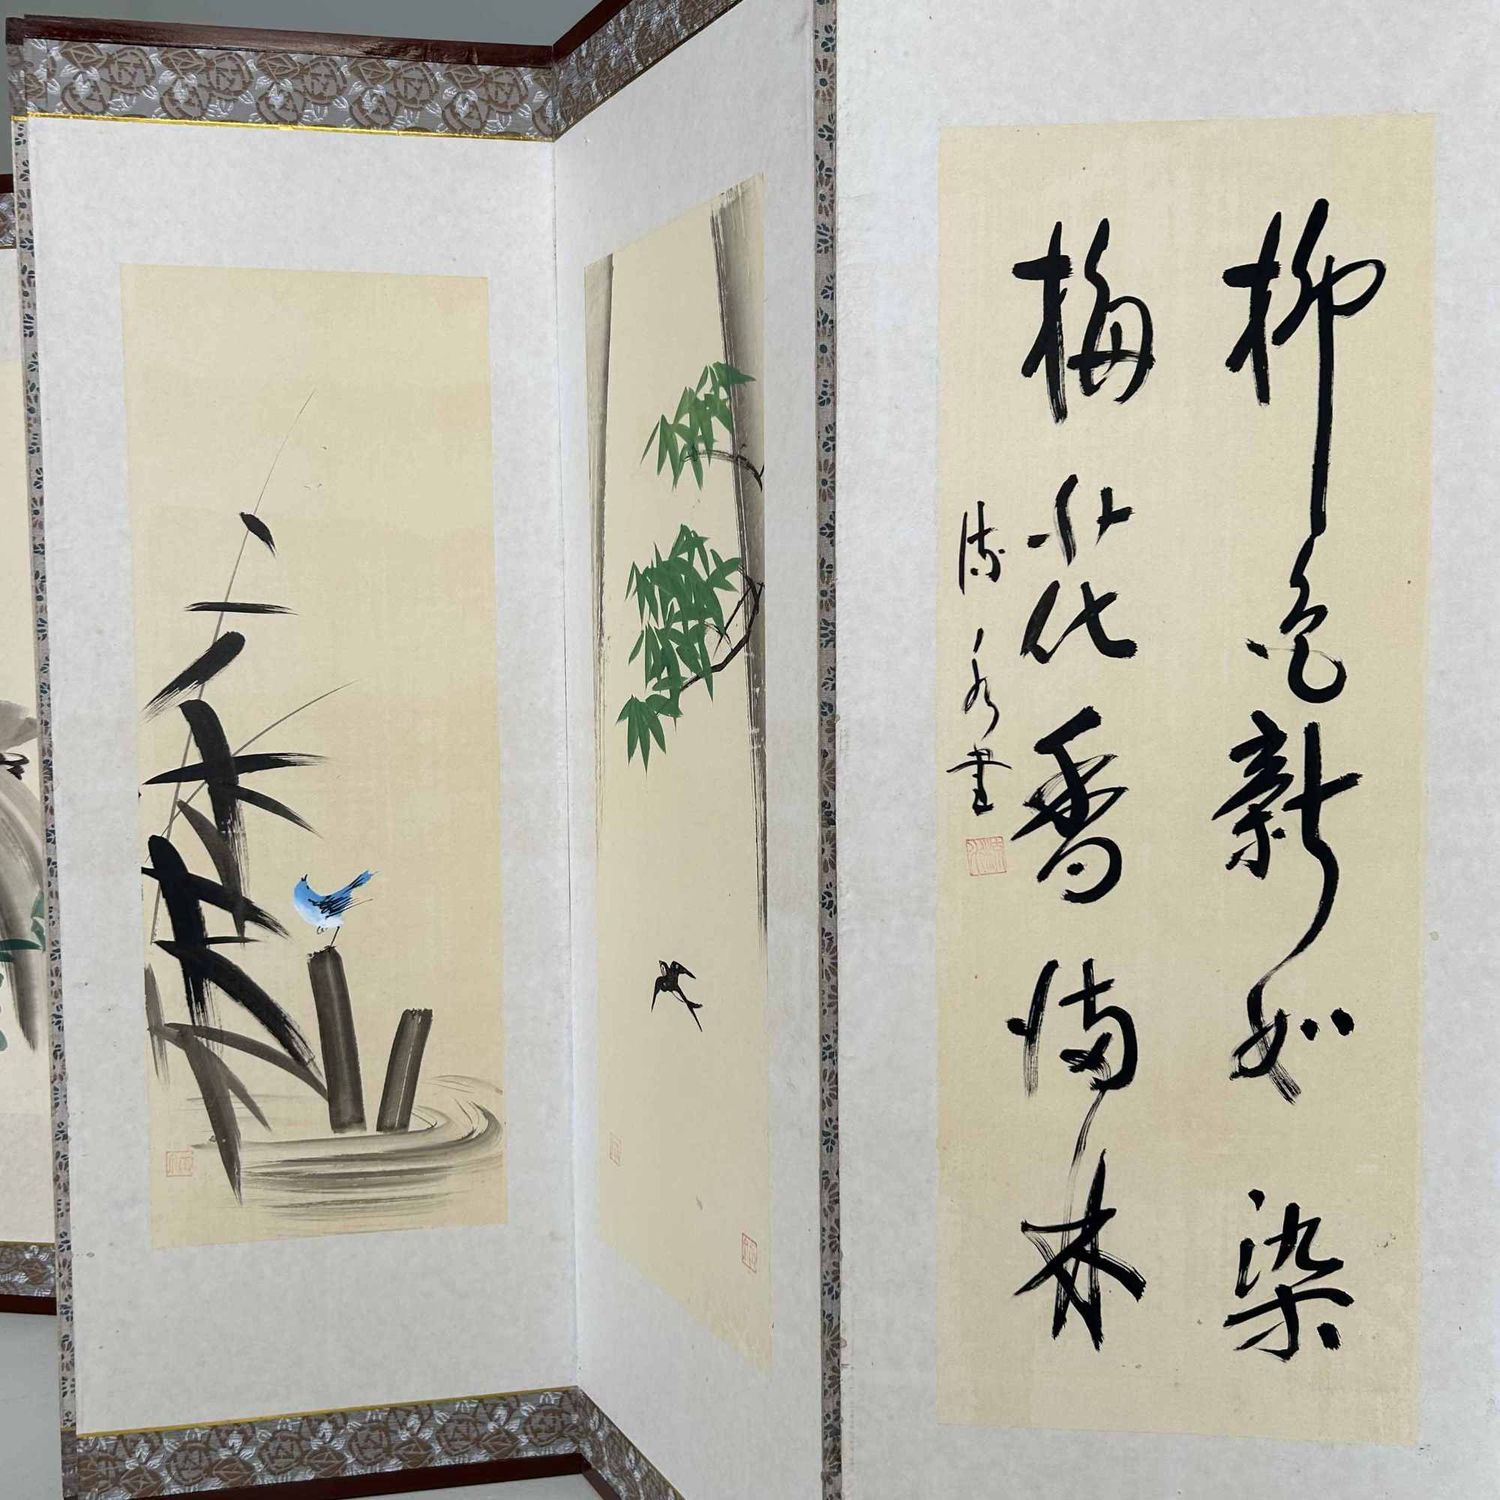 柳色新如染
梅花香満林
書